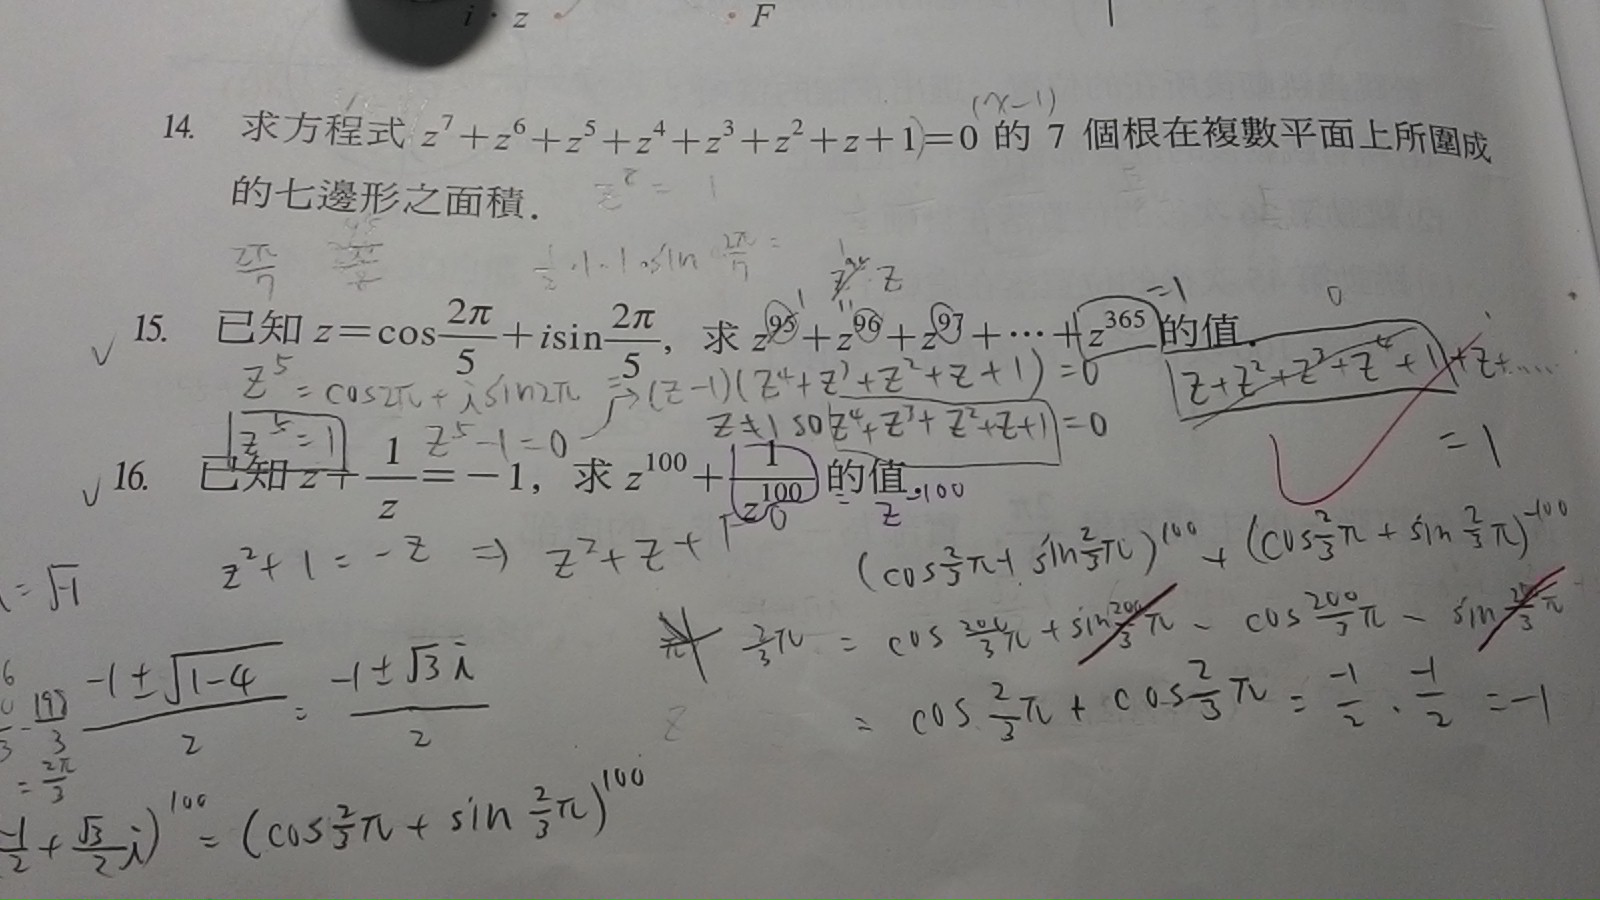 i · z · F
(x-1)
14. 求方程式 z⁷+z⁶+z⁵+z⁴+z³+z²+z+1)=0 的 7 個根在複數平面上所圍成
的七邊形之面積.
z² = 1
2π/7
1/2 · 1 · 1 · sin 2π/7 =
· z
15. 已知 z=cos 2π/5 + i sin 2π/5, 求 z⁹⁵+z⁹⁶+z⁹⁷+⋯+z³⁶⁵ 的值.
1 1 =1 0
z⁵ = cos2π + i sin2π (z-1)(z⁴+z³+z²+z+1)=0 z+z²+z³+z⁴+1+z+.....
z⁵=1 z⁵-1=0 z≠1 so z⁴+z³+z²+z+1=0 =1
16. 已知 z+1/z=-1, 求 z¹⁰⁰+1/z¹⁰⁰ 的值.
z⁻¹⁰⁰
z²+1=-z ⇒ z²+z+1 0
(cos 2/3 π + sin 2/3 π)¹⁰⁰ + (cos 2/3 π + sin 2/3 π)⁻¹⁰⁰
=√-1
2/3 π = cos 200/3 π + sin 200/3 π - cos 200/3 π - sin 200/3 π
-1±√1-4/2 = -1±√3 i/2
= cos 2/3 π + cos 2/3 π = -1/2 · -1/2 = -1
198/3
= 2π/3
z
-1/2 + √3/2 i)¹⁰⁰ = (cos 2/3 π + sin 2/3 π)¹⁰⁰